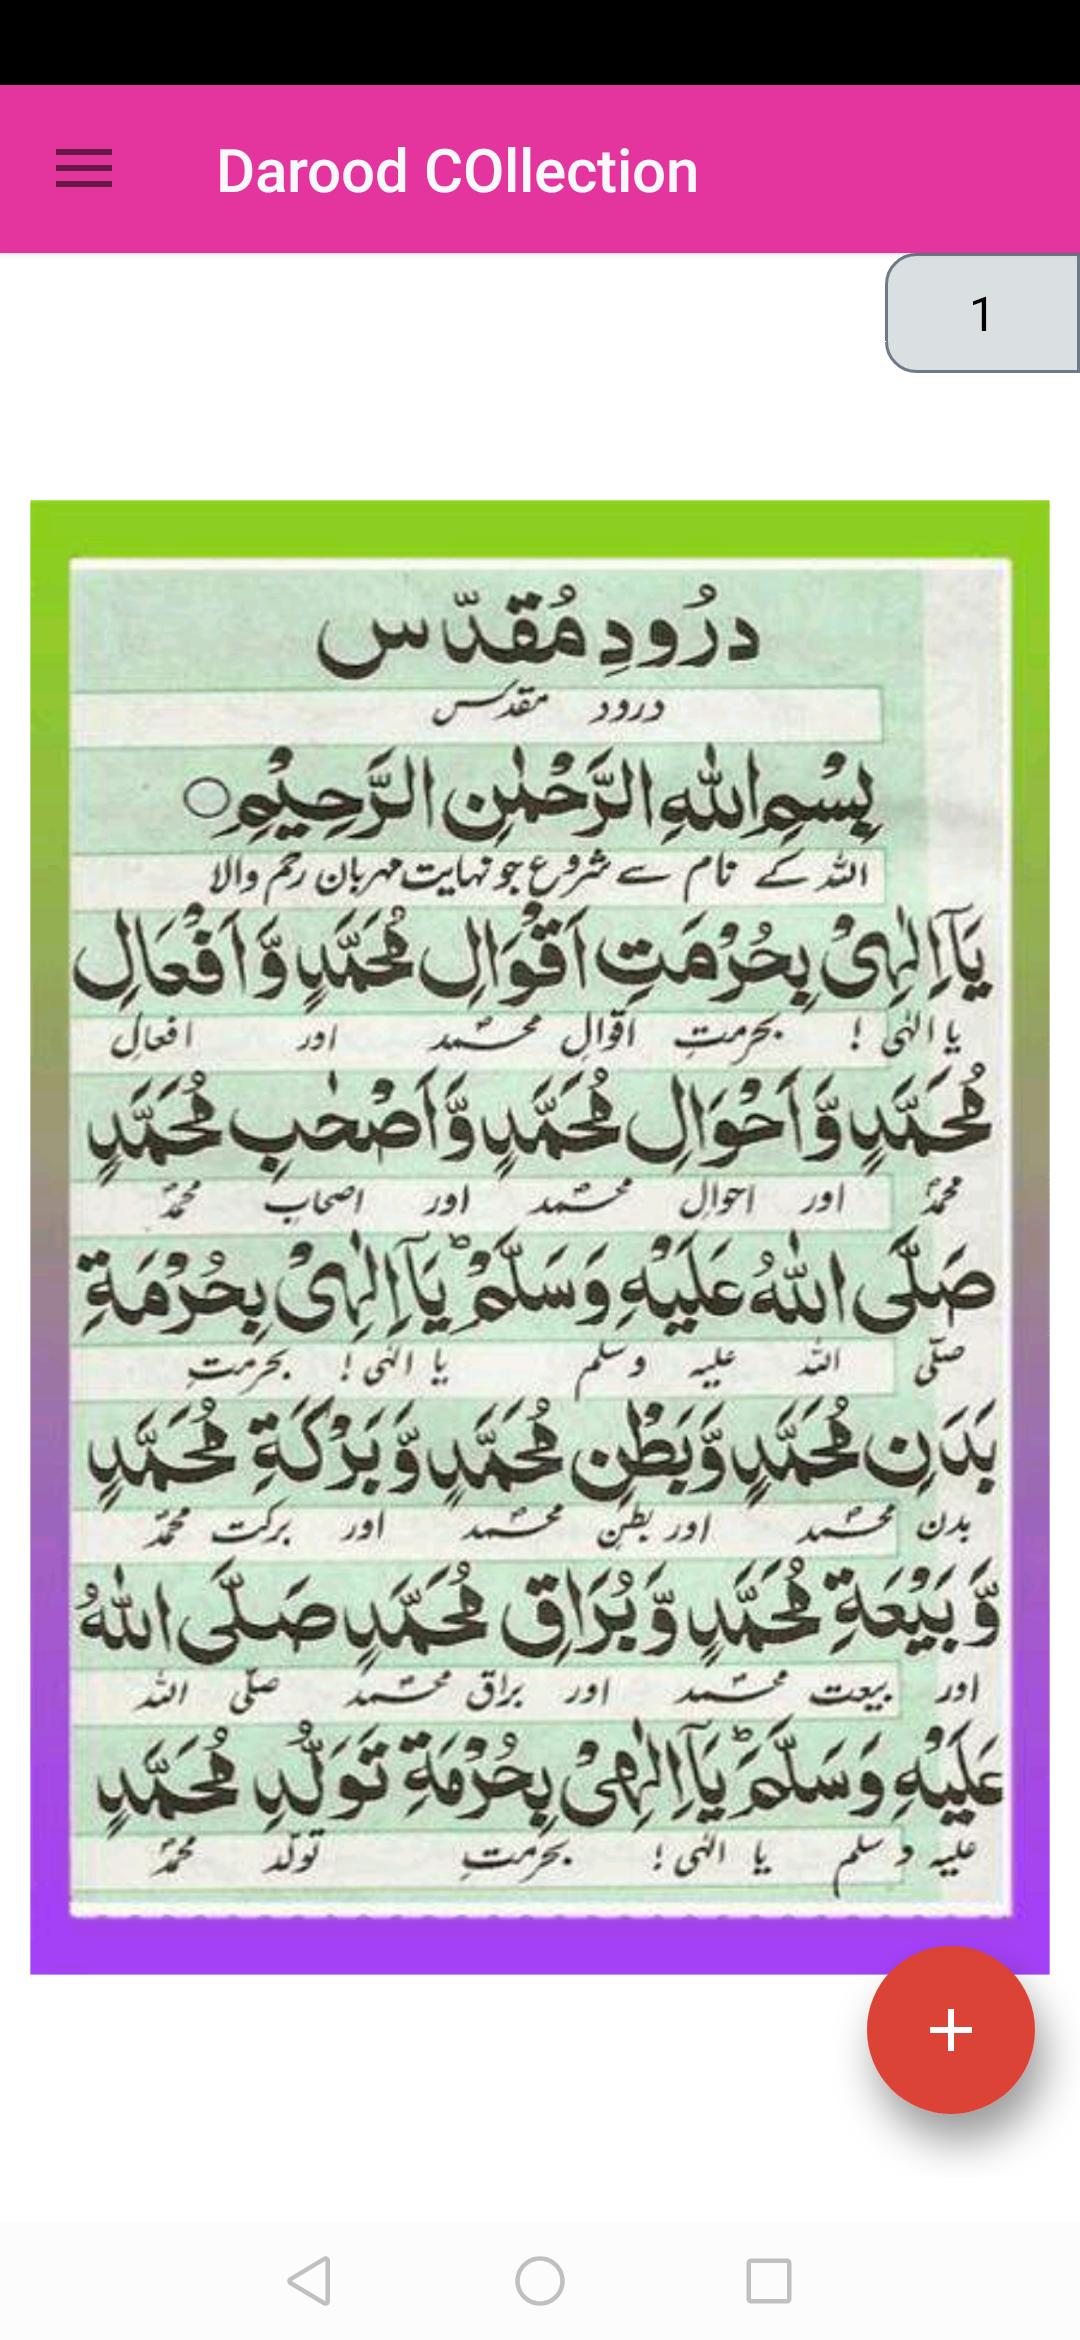 Darood COllection
1
درُودِ مُقدّس
درود مقدس
بِسْمِ اللهِ الرَّحْمٰنِ الرَّحِيْمِ ○
اللہ کے نام سے شروع جو نہایت مہربان رحم والا
يَآ اِلٰهِىْ بِحُرْمَتِ اَقْوَالِ مُحَمَّدٍ وَّ اَفْعَالِ
یا الٰہی ! بحرمتِ اقوالِ محمد اور افعالِ
مُحَمَّدٍ وَّ اَحْوَالِ مُحَمَّدٍ وَّ اَصْحٰبِ مُحَمَّدٍ
محمدؐ اور احوالِ محمد اور اصحابِ محمدؐ
صَلَّى اللهُ عَلَيْهِ وَسَلَّمْ ؕ يَآ اِلٰهِىْ بِحُرْمَةِ
صلّی اللہ علیہ وسلم یا الٰہی ! بحرمتِ
بَدَنِ مُحَمَّدٍ وَّ بَطْنِ مُحَمَّدٍ وَّ بَرْكَةِ مُحَمَّدٍ
بدن محمد اور بطنِ محمد اور برکت محمدؐ
وَّ بَيْعَةِ مُحَمَّدٍ وَّ بُرَاقِ مُحَمَّدٍ صَلَّى اللهُ
اور بیعت محمد اور براق محمد صلّی اللہ
عَلَيْهِ وَسَلَّمَ ؕ يَآ اِلٰهِىْ بِحُرْمَةِ تَوَلُّدِ مُحَمَّدٍ
علیہ وسلم یا الٰہی ! بحرمتِ تولّد محمدؐ